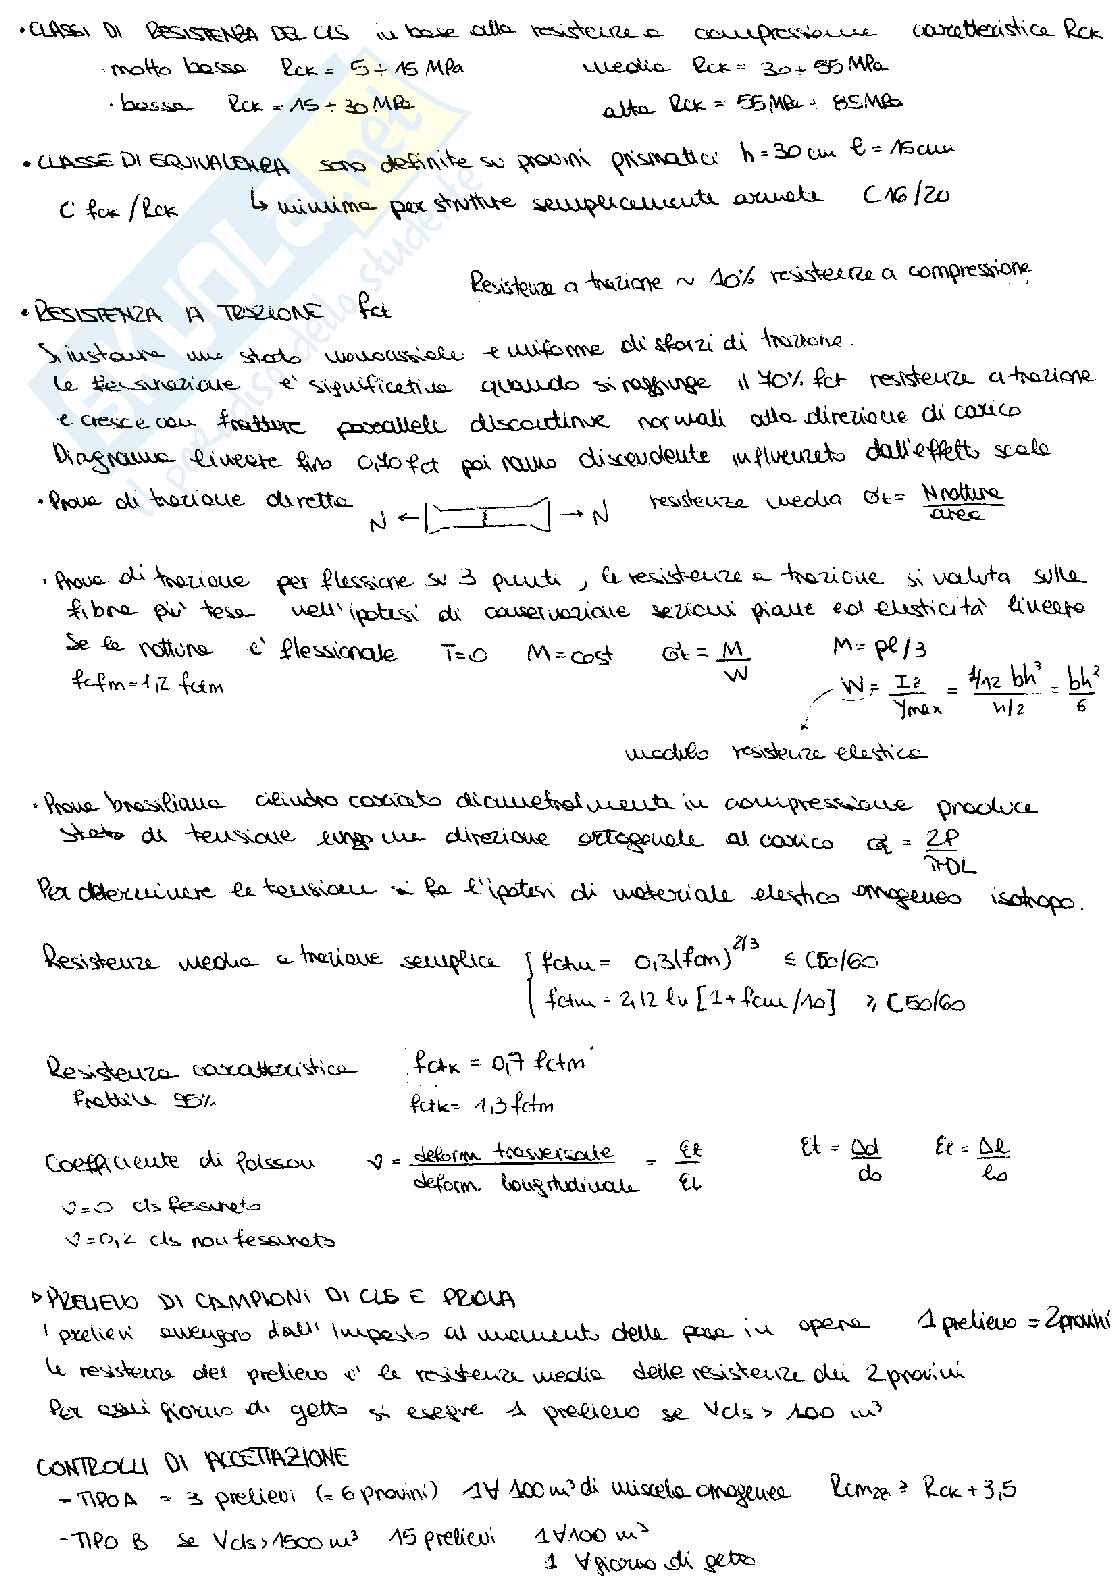 • CLASSI DI RESISTENZA DEL CLS in base alla resistenza a compressione caratteristica Rck
· molto bassa Rck = 5 ÷ 15 MPa media Rck = 30 ÷ 55 MPa
· bassa Rck = 15 ÷ 30 MPa alta Rck = 55 MPa ÷ 85 MPa
• CLASSE DI EQUIVALENZA sono definite su provini prismatici h = 30 cm l = 15 cm
C fck / Rck ↳ minima per strutture semplicemente armate C 16/20
Resistenza a trazione ~ 10% resistenza a compressione
• RESISTENZA A TRAZIONE fct
Si instaura uno stato monoassiale e uniforme di sforzi di trazione.
la fessurazione e' significativa quando si raggiunge il 70% fct resistenza a trazione
e cresce con fratture parallele discontinue normali alla direzione di carico
Diagramma lineare fino 0,70 fct poi ramo discendente influenzato dall'effetto scala
· Prova di trazione diretta N ← → N resistenza media σt = N rottura / area
· Prova di trazione per flessione su 3 punti, la resistenza a trazione si valuta sulla
fibra piu' tesa nell'ipotesi di conservazione sezioni piane ed elasticità lineare
Se la rottura e' flessionale T=0 M=cost σt = M / W M = pl/3
fcfm = 1,2 fctm W = Iz / ymax = 1/12 bh³ / h/2 = bh² / 6
modulo resistenza elastica
· Prova brasiliana cilindro caricato diametralmente in compressione produce
stato di tensione lungo una direzione ortogonale al carico σt = 2P / πDL
Per determinare la tensione si fa l'ipotesi di materiale elastico omogeneo isotropo.
Resistenza media a trazione semplice { fctm = 0,3(fcm)^2/3 ≤ C50/60
fctm = 2,12 ln [1 + fcm/10] ≥ C50/60
Resistenza caratteristica fctk = 0,7 fctm
frattile 95% fctk = 1,3 fctm
Coefficiente di Poisson ν = deform trasversale / deform. longitudinale = εt / εl εt = Δd / d0 εl = Δl / l0
ν=0 cls fessurato
ν=0,2 cls non fessurato
▷ PRELIEVO DI CAMPIONI DI CLS E PROVA
I prelievi avvengono dall'impasto al momento della posa in opera 1 prelievo = 2 provini
la resistenza del prelievo e' la resistenza media delle resistenze dei 2 provini
Per ogni giorno di getto si esegue 1 prelievo se Vcls > 100 m³
CONTROLLI DI ACCETTAZIONE
- TIPO A = 3 prelievi (= 6 provini) 1∀ 100 m³ di miscela omogenea Rcm28 ≥ Rck + 3,5
- TIPO B se Vcls > 1500 m³ 15 prelievi 1∀100 m³
1 ∀ giorno di getto